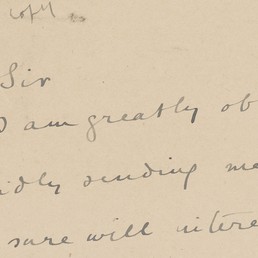 copy
Sir
I am greatly ob
idly sending me
sure will intere